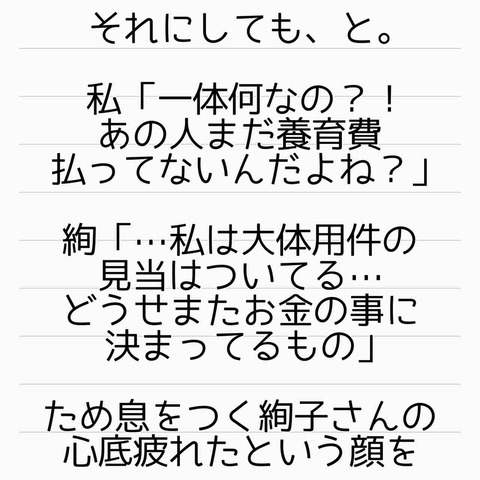 それにしても、と。
私「一体何なの？！
あの人まだ養育費
払ってないんだよね？」
絢「…私は大体用件の
見当はついてる…
どうせまたお金の事に
決まってるもの」
ため息をつく絢子さんの
心底疲れたという顔を